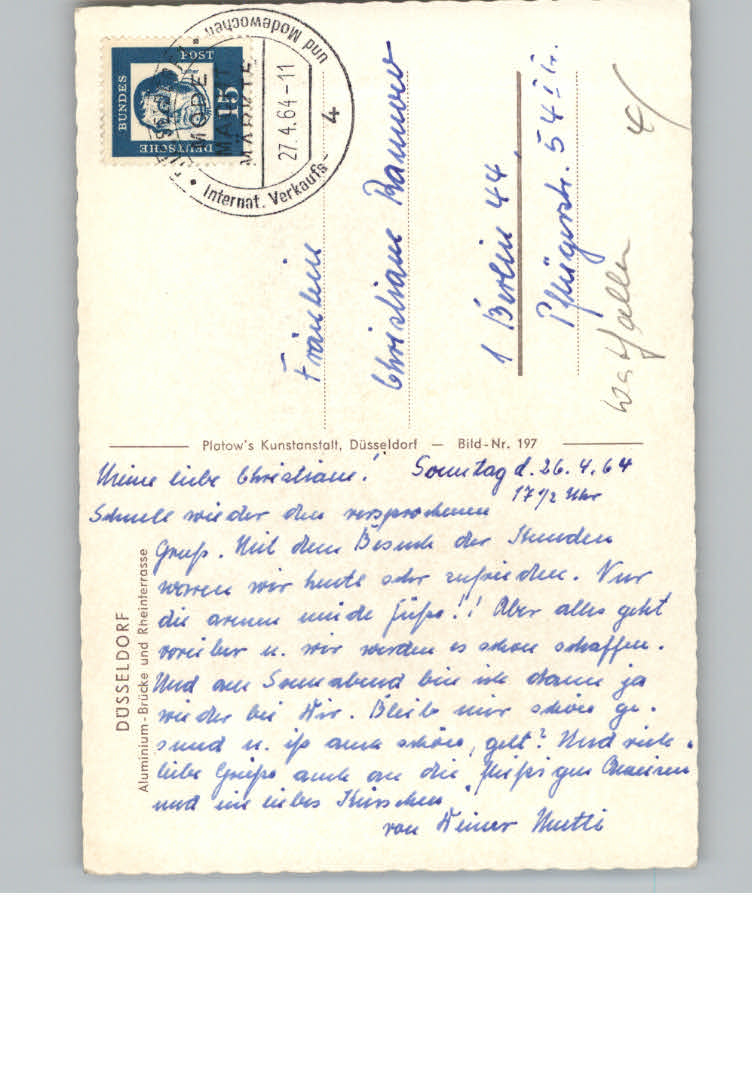 DEUTSCHE
BUNDES
POST
15
und Modewochen
Internat. Verkaufs-
27.4.64-11
4
Fräulein
Christiane
1 Berlin 44,
Pflügerstr. 54 I lr.
Westfalen
Platow's Kunstanstalt, Düsseldorf — Bild-Nr. 197
Meine liebe Christiane! Sonntag d. 26.4.64
17 1/2 Uhr
Schnell wieder den versprochenen
Gruß. Mit dem Besuch der Kunden
waren wir heute sehr zufrieden. Nur
die armen müde Füße!! Aber alles geht
vorüber u. wir werden es schon schaffen.
Und am Sonnabend bin ich dann ja
wieder bei Dir. Bleib mir schön ge-
sund u. iß auch schön, gelt? Und viele
liebe Grüße auch an die fleißigen Ameisen
und ein liebes Küsschen
von Deiner Mutti
DÜSSELDORF
Aluminium-Brücke und Rheinterrasse